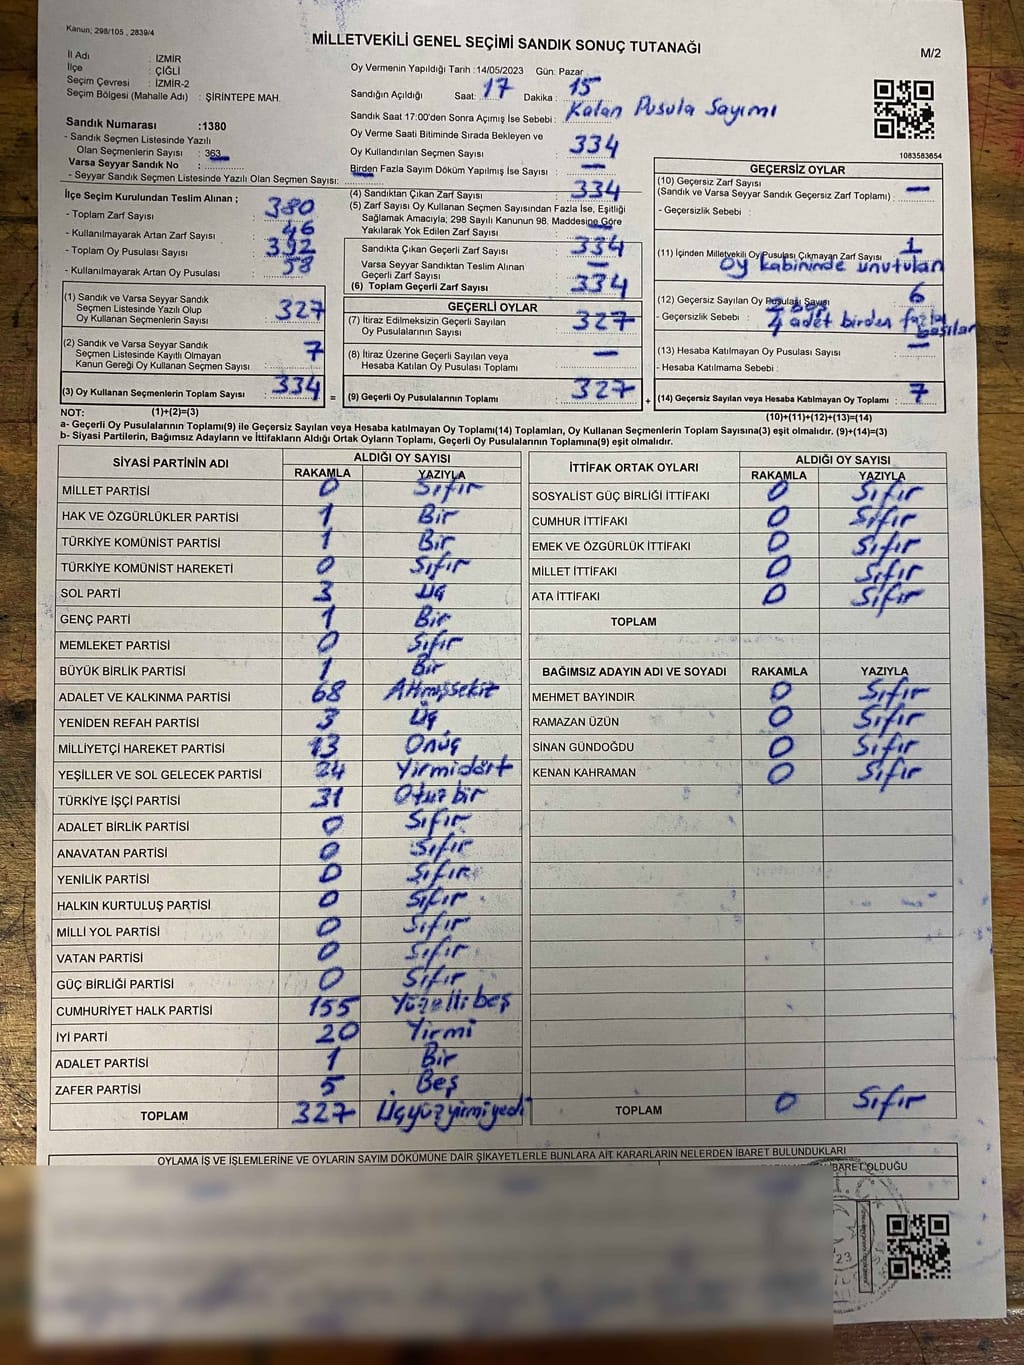 Kanun; 298/105 , 2839/4
MİLLETVEKİLİ GENEL SEÇİMİ SANDIK SONUÇ TUTANAĞI
M/2
İl Adı : İZMİR
İlçe : ÇİĞLİ
Seçim Çevresi : İZMİR-2
Seçim Bölgesi (Mahalle Adı) : ŞİRİNTEPE MAH.
Sandık Numarası :1380
- Sandık Seçmen Listesinde Yazılı
Olan Seçmenlerin Sayısı : 363
Varsa Seyyar Sandık No :
- Seyyar Sandık Seçmen Listesinde Yazılı Olan Seçmen Sayısı:
Oy Vermenin Yapıldığı Tarih :14/05/2023 Gün: Pazar
Sandığın Açıldığı Saat: 17 Dakika : 15
Sandık Saat 17:00'den Sonra Açımış İse Sebebi : Kalan Pusula Sayımı
Oy Verme Saati Bitiminde Sırada Bekleyen ve
Oy Kullandırılan Seçmen Sayısı : 334
Birden Fazla Sayım Döküm Yapılmış İse Sayısı : —
1083583654
İlçe Seçim Kurulundan Teslim Alınan ;
- Toplam Zarf Sayısı : 380
- Kullanılmayarak Artan Zarf Sayısı : 46
- Toplam Oy Pusulası Sayısı : 392
- Kullanılmayarak Artan Oy Pusulası : 58
(1) Sandık ve Varsa Seyyar Sandık
Seçmen Listesinde Yazılı Olup
Oy Kullanan Seçmenlerin Sayısı : 327
(2) Sandık ve Varsa Seyyar Sandık
Seçmen Listesinde Kayıtlı Olmayan
Kanun Gereği Oy Kullanan Seçmen Sayısı : 7
(3) Oy Kullanan Seçmenlerin Toplam Sayısı : 334
(4) Sandıktan Çıkan Zarf Sayısı : 334
(5) Zarf Sayısı Oy Kullanan Seçmen Sayısından Fazla İse, Eşitliği
Sağlamak Amacıyla; 298 Sayılı Kanunun 98. Maddesine Göre
Yakılarak Yok Edilen Zarf Sayısı : —
Sandıkta Çıkan Geçerli Zarf Sayısı : 334
Varsa Seyyar Sandıktan Teslim Alınan
Geçerli Zarf Sayısı : —
(6) Toplam Geçerli Zarf Sayısı : 334
GEÇERLİ OYLAR
(7) İtiraz Edilmeksizin Geçerli Sayılan
Oy Pusulalarının Sayısı : 327
(8) İtiraz Üzerine Geçerli Sayılan veya
Hesaba Katılan Oy Pusulası Toplamı : —
= (9) Geçerli Oy Pusulalarının Toplamı : 327
GEÇERSİZ OYLAR
(10) Geçersiz Zarf Sayısı
(Sandık ve Varsa Seyyar Sandık Geçersiz Zarf Toplamı) : —
- Geçersizlik Sebebi :
(11) İçinden Milletvekili Oy Pusulası Çıkmayan Zarf Sayısı : 1
Oy kabininde unutulan
(12) Geçersiz Sayılan Oy Pusulası Sayısı : 6
- Geçersizlik Sebebi : 2 boş
4 adet birden fazla
basılan
(13) Hesaba Katılmayan Oy Pusulası Sayısı : —
- Hesaba Katılmama Sebebi :
+ (14) Geçersiz Sayılan veya Hesaba Katılmayan Oy Toplamı : 7
NOT: (1)+(2)=(3)
(10)+(11)+(12)+(13)=(14)
a- Geçerli Oy Pusulalarının Toplamı(9) ile Geçersiz Sayılan veya Hesaba katılmayan Oy Toplamı(14) Toplamları, Oy Kullanan Seçmenlerin Toplam Sayısına(3) eşit olmalıdır. (9)+(14)=(3)
b- Siyasi Partilerin, Bağımsız Adayların ve İttifakların Aldığı Ortak Oyların Toplamı, Geçerli Oy Pusulalarının Toplamına(9) eşit olmalıdır.
SİYASİ PARTİNİN ADI ALDIĞI OY SAYISI
RAKAMLA YAZIYLA
MİLLET PARTİSİ 0 Sıfır
HAK VE ÖZGÜRLÜKLER PARTİSİ 1 Bir
TÜRKİYE KOMÜNİST PARTİSİ 1 Bir
TÜRKİYE KOMÜNİST HAREKETİ 0 Sıfır
SOL PARTİ 3 Üç
GENÇ PARTİ 1 Bir
MEMLEKET PARTİSİ 0 Sıfır
BÜYÜK BİRLİK PARTİSİ 1 Bir
ADALET VE KALKINMA PARTİSİ 68 Altmışsekiz
YENİDEN REFAH PARTİSİ 3 Üç
MİLLİYETÇİ HAREKET PARTİSİ 13 Onüç
YEŞİLLER VE SOL GELECEK PARTİSİ 24 Yirmidört
TÜRKİYE İŞÇİ PARTİSİ 31 Otuz bir
ADALET BİRLİK PARTİSİ 0 Sıfır
ANAVATAN PARTİSİ 0 Sıfır
YENİLİK PARTİSİ 0 Sıfır
HALKIN KURTULUŞ PARTİSİ 0 Sıfır
MİLLİ YOL PARTİSİ 0 Sıfır
VATAN PARTİSİ 0 Sıfır
GÜÇ BİRLİĞİ PARTİSİ 0 Sıfır
CUMHURİYET HALK PARTİSİ 155 Yüzellibeş
İYİ PARTİ 20 Yirmi
ADALET PARTİSİ 1 Bir
ZAFER PARTİSİ 5 Beş
TOPLAM 327 Üçyüzyirmiyedi
İTTİFAK ORTAK OYLARI ALDIĞI OY SAYISI
RAKAMLA YAZIYLA
SOSYALİST GÜÇ BİRLİĞİ İTTİFAKI 0 Sıfır
CUMHUR İTTİFAKI 0 Sıfır
EMEK VE ÖZGÜRLÜK İTTİFAKI 0 Sıfır
MİLLET İTTİFAKI 0 Sıfır
ATA İTTİFAKI 0 Sıfır
TOPLAM
BAĞIMSIZ ADAYIN ADI VE SOYADI RAKAMLA YAZIYLA
MEHMET BAYINDIR 0 Sıfır
RAMAZAN ÜZÜN 0 Sıfır
SİNAN GÜNDOĞDU 0 Sıfır
KENAN KAHRAMAN 0 Sıfır
TOPLAM 0 Sıfır
OYLAMA İŞ VE İŞLEMLERİNE VE OYLARIN SAYIM DÖKÜMÜNE DAİR ŞİKAYETLERLE BUNLARA AİT KARARLARIN NELERDEN İBARET BULUNDUKLARI
İBARET OLDUĞU